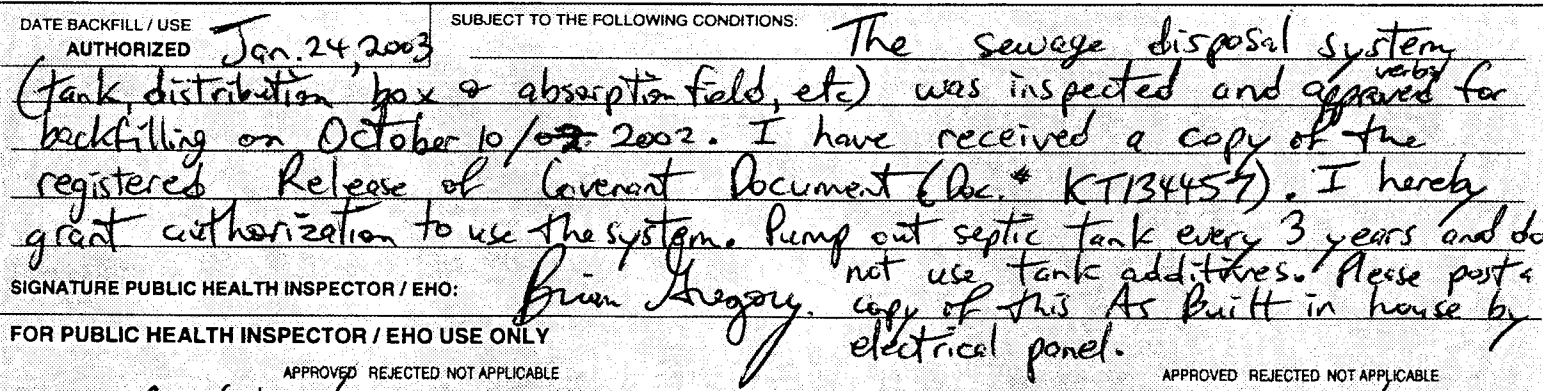 DATE BACKFILL / USE
AUTHORIZED Jan. 24, 2003
SUBJECT TO THE FOLLOWING CONDITIONS: The sewage disposal system
(tank, distribution box & absorption field, etc) was inspected and verbal approved for
backfilling on October 10/02 2002. I have received a copy of the
registered Release of Covenant Document (Doc. # KT134457). I hereby
grant authorization to use the system. Pump out septic tank every 3 years and do
not use tank additives. Please post a
SIGNATURE PUBLIC HEALTH INSPECTOR / EHO: Brian Gregory. copy of this As Built in house by
electrical panel.
FOR PUBLIC HEALTH INSPECTOR / EHO USE ONLY
APPROVED REJECTED NOT APPLICABLE APPROVED REJECTED NOT APPLICABLE